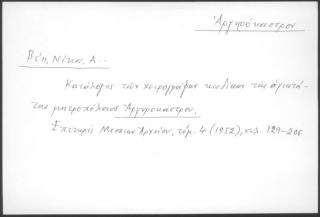 Ἀργυρόκαστρον
Βέη, Νίκου, Α..
Κατάλογος τῶν χειρογράφων κωδίκων τῆς ἁγιωτά-
της μητροπόλεως Ἀργυροκάστρου.
Ἐπετηρὶς Μεσαιων. Ἀρχείου, τόμ. 4 (1952), σελ. 129-206.